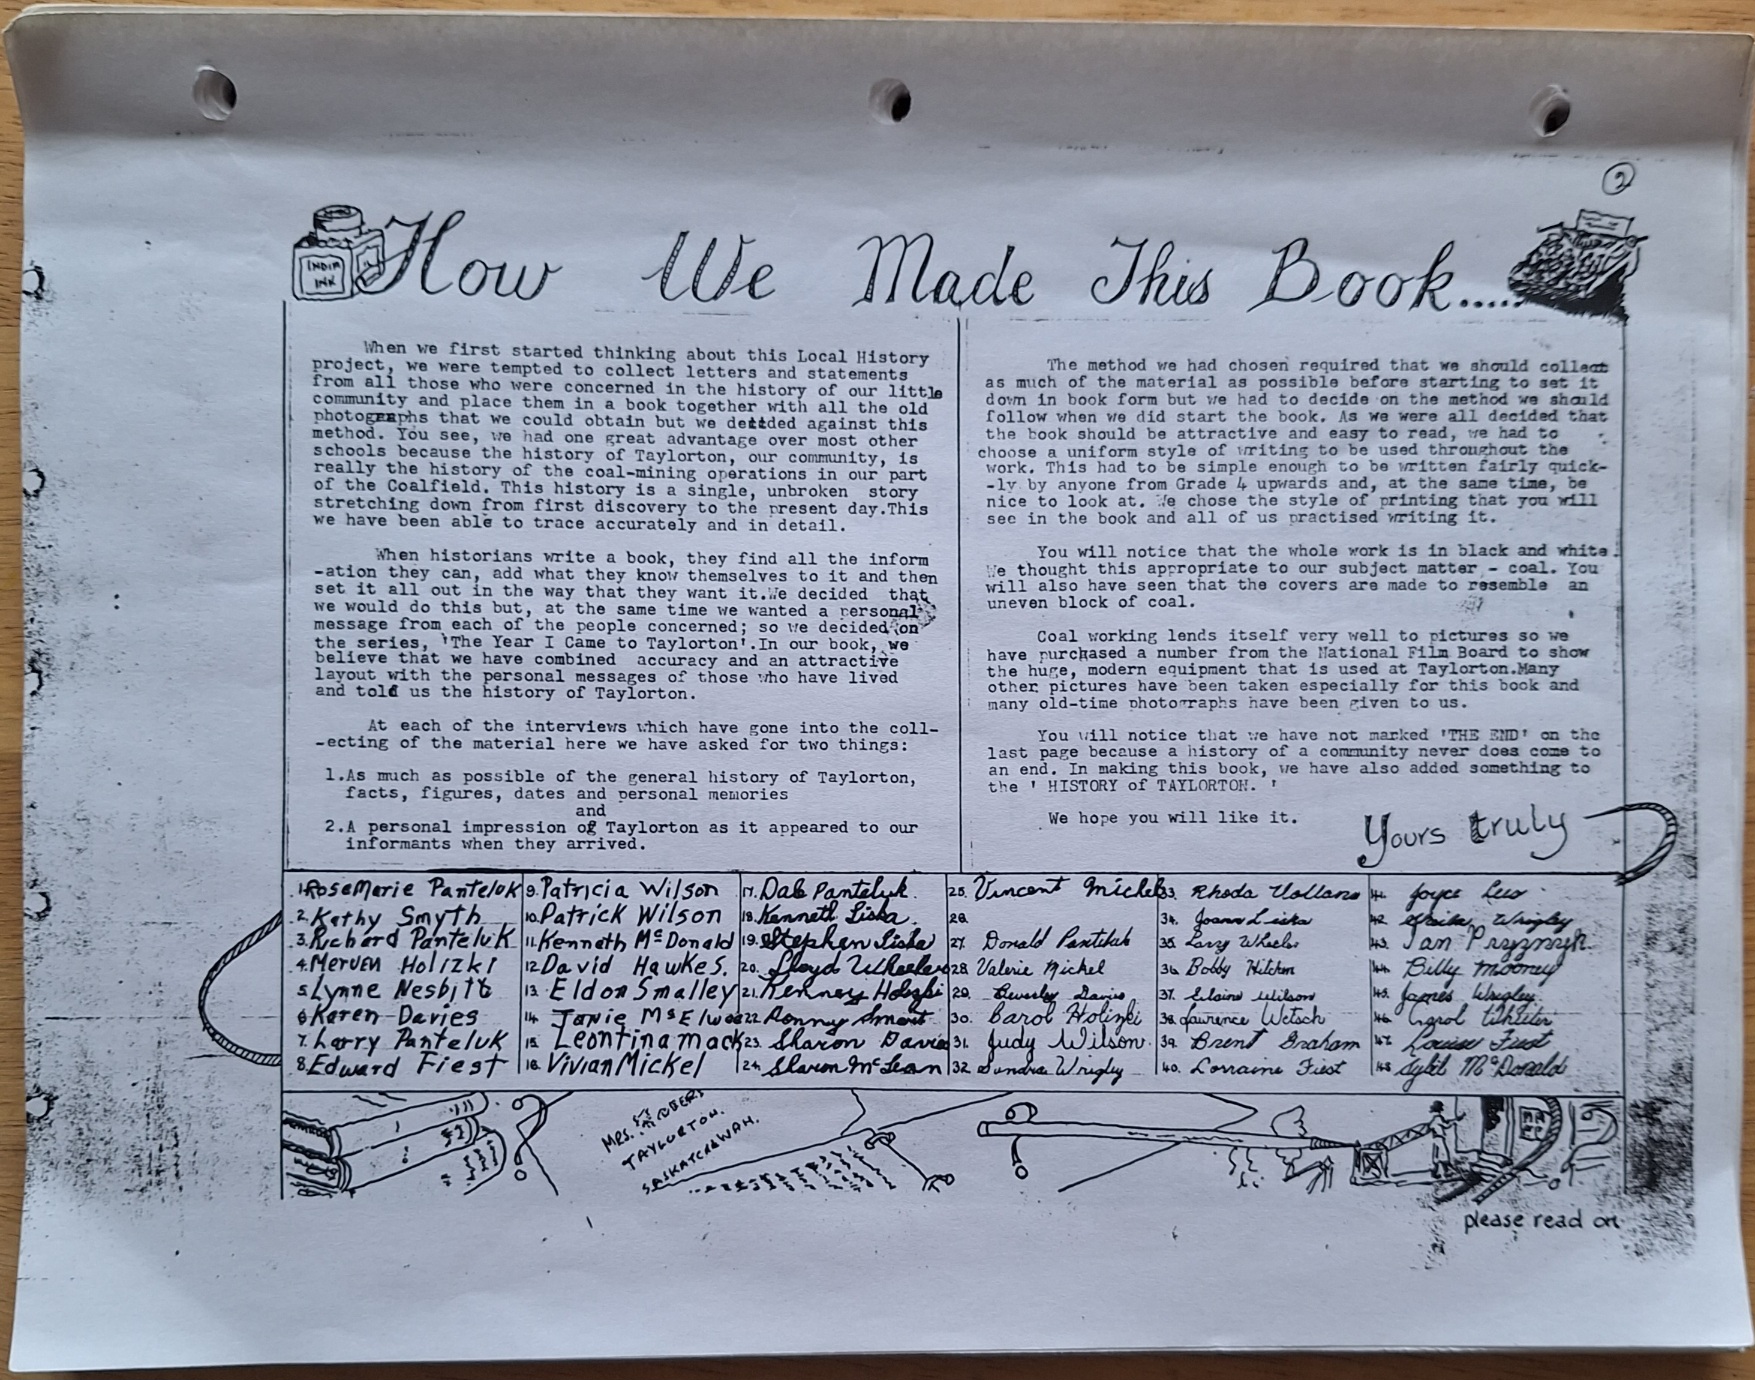 2
INDIA
INK
How We Made This Book.....
When we first started thinking about this Local History
project, we were tempted to collect letters and statements
from all those who were concerned in the history of our little
community and place them in a book together with all the old
photographs that we could obtain but we decided against this
method. You see, we had one great advantage over most other
schools because the history of Taylorton, our community, is
really the history of the coal-mining operations in our part
of the Coalfield. This history is a single, unbroken story
stretching down from first discovery to the present day.This
we have been able to trace accurately and in detail.
When historians write a book, they find all the inform
-ation they can, add what they know themselves to it and then
set it all out in the way that they want it.We decided that
we would do this but, at the same time we wanted a personal
message from each of the people concerned; so we decided on
the series, 'The Year I Came to Taylorton'.In our book, we
believe that we have combined accuracy and an attractive
layout with the personal messages of those who have lived
and told us the history of Taylorton.
At each of the interviews which have gone into the coll-
-ecting of the material here we have asked for two things:
1.As much as possible of the general history of Taylorton,
facts, figures, dates and personal memories
and
2.A personal impression of Taylorton as it appeared to our
informants when they arrived.
The method we had chosen required that we should collect
as much of the material as possible before starting to set it
down in book form but we had to decide on the method we should
follow when we did start the book. As we were all decided that
the book should be attractive and easy to read, we had to
choose a uniform style of writing to be used throughout the
work. This had to be simple enough to be written fairly quick-
-ly by anyone from Grade 4 upwards and, at the same time, be
nice to look at. We chose the style of printing that you will
see in the book and all of us practised writing it.
You will notice that the whole work is in black and white.
We thought this appropriate to our subject matter - coal. You
will also have seen that the covers are made to resemble an
uneven block of coal.
Coal working lends itself very well to pictures so we
have purchased a number from the National Film Board to show
the huge, modern equipment that is used at Taylorton.Many
other pictures have been taken especially for this book and
many old-time photographs have been given to us.
You will notice that we have not marked 'THE END' on the
last page because a history of a community never does come to
an end. In making this book, we have also added something to
the ' HISTORY of TAYLORTON. '
We hope you will like it.
Yours truly
1. RoseMarie Panteluk
2. Kathy Smyth
3. Richard Panteluk
4. Merven Holizki
5. Lynne Nesbitt
6. Karen Davies
7. Larry Panteluk
8. Edward Fiest
9. Patricia Wilson
10. Patrick Wilson
11. Kenneth McDonald
12. David Hawkes.
13. Eldon Smalley
14. Janie McElwee
15. Leontina Mack
16. Vivian Mickel
17. Dale Panteluk
18. Kenneth Liska
19. Stephen Liska
20. Lloyd Wheeler
21. Kenney Holizki
22. Ronny Smart
23. Sharon Davies
24. Sharon McLean
25. Vincent Michel
26.
27. Donald
28. Valerie Mickel
29. Beverley Davies
30. Carol Holizki
31. Judy Wilson
32. Sandra Wrigley
33. Rhoda
34. Joann Liska
35. Larry Wheeler
36. Bobby Hitchen
37. Elaine Wilson
38. Lawrence Wetsch
39. Brent Graham
40. Lorraine Fiest
41. Joyce
42. Wrigley
43. Ian
44. Billy Mooney
45. James Wrigley
46. Carol Wheeler
47. Louise Fiest
48. Sybil McDonald
MRS.
TAYLORTON.
SASKATCHEWAN.
please read on